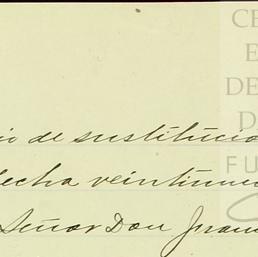 CE
E
DE
D
FU
io de sustitucio
fecha veintinue
Señor Don Juan